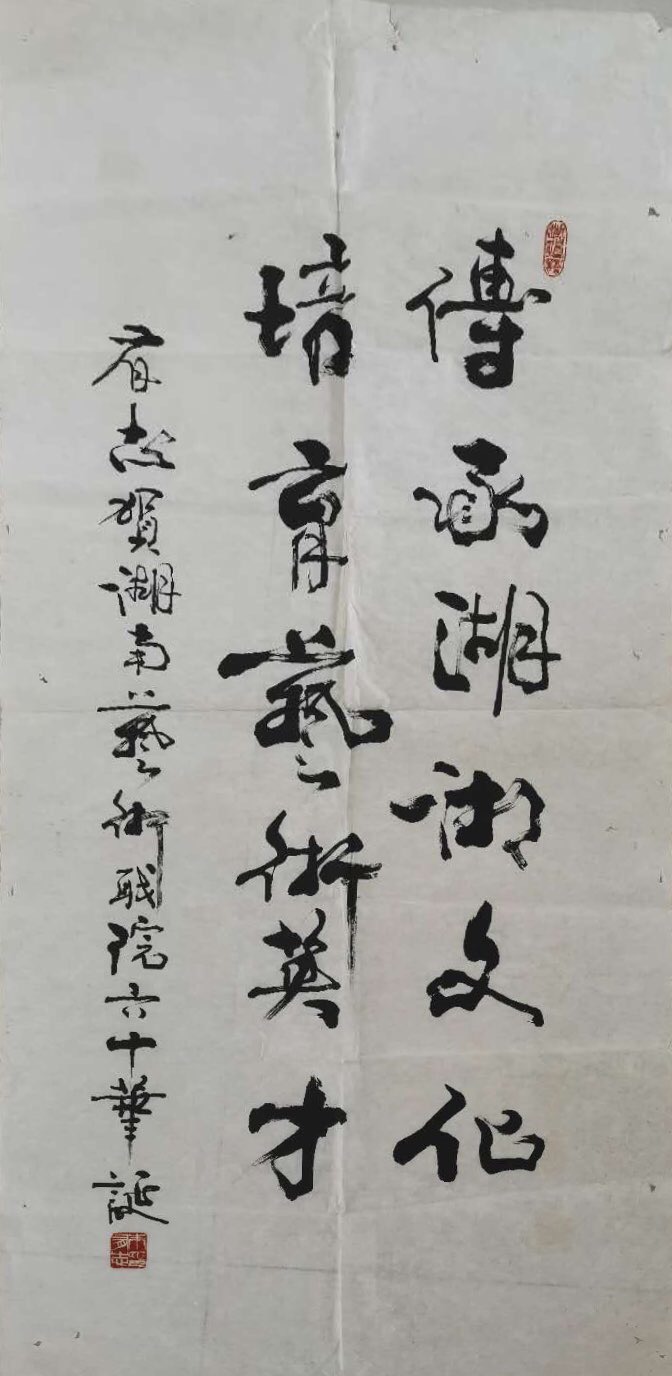 傳承湖湘文化
培育藝術英才
有志賀湖南藝術職院六十華誕